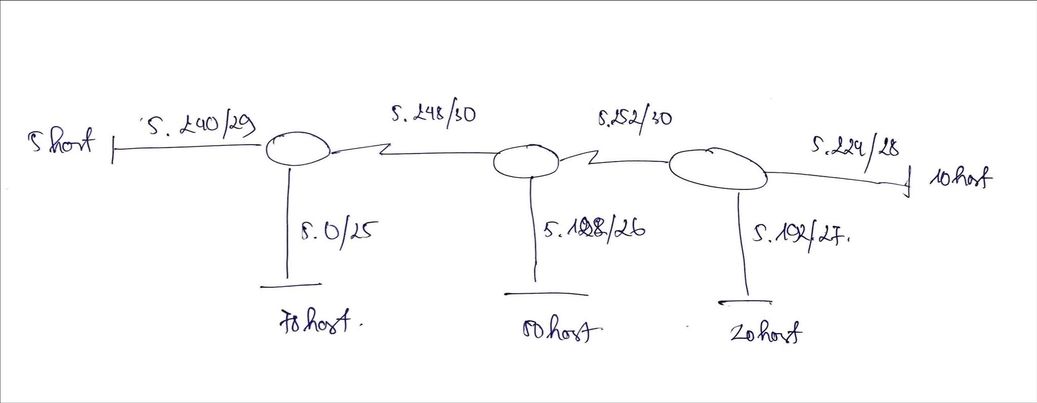 5 host
5.240/29
5.248/30
5.252/30
5.224/28
10 host
5.0/25
5.128/26
5.192/27.
70 host.
50 host
20 host